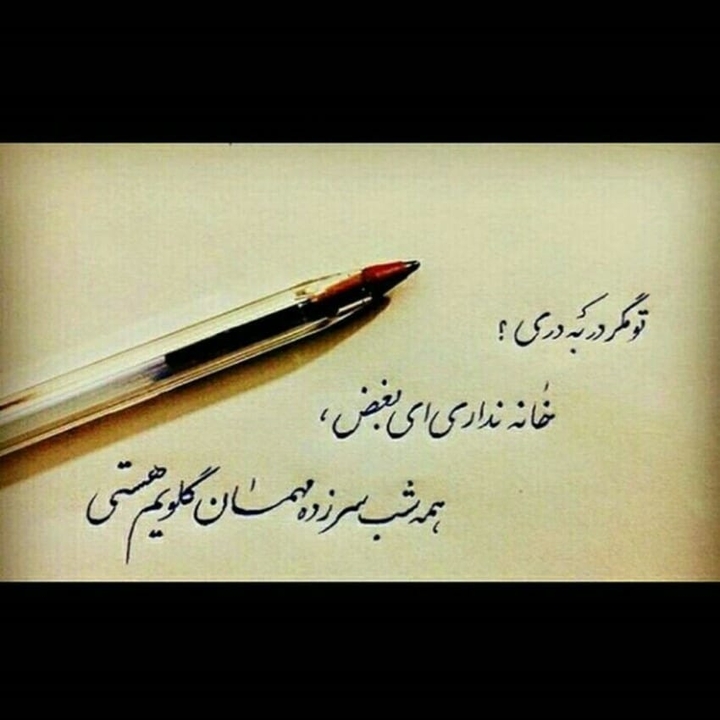 تو مگر در به دری ؟
خانه نداری ای بغض ،
همه شب سر زده مهمان گلویم هستی